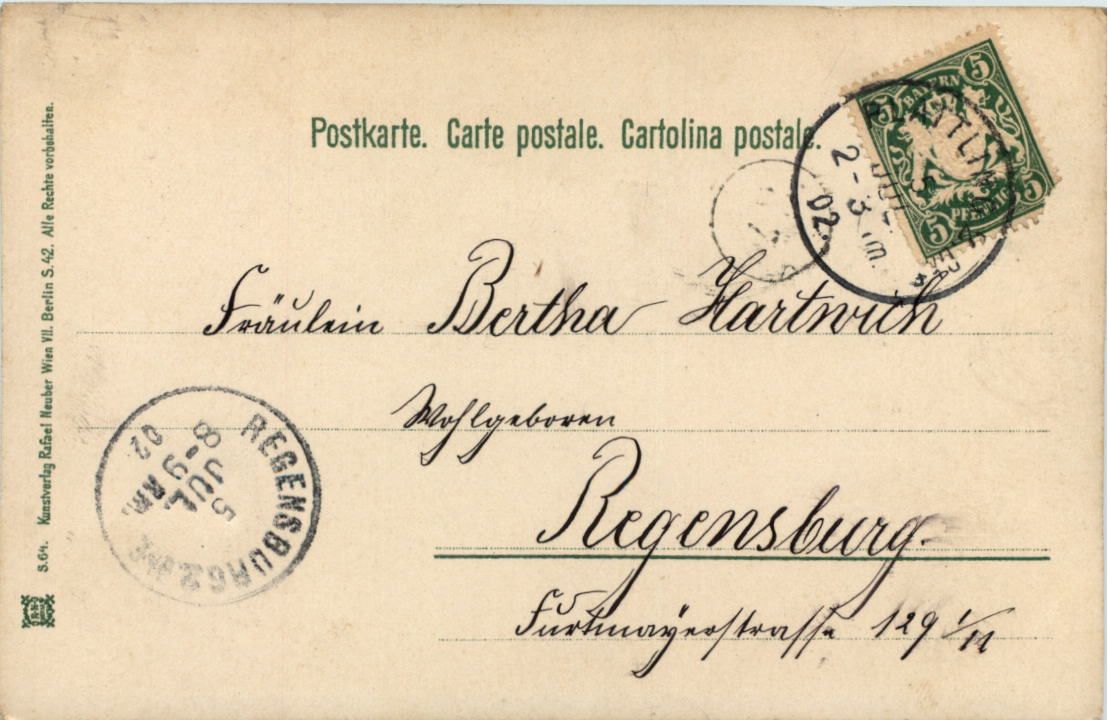 Postkarte. Carte postale. Cartolina postale.
5 BAYERN 5
5 PFENNIG 5
5 JUL.
2-3 Nm.
02.
Fräulein Bertha Hartwich
Wohlgeboren
Regensburg.
Furtmayerstrasse 129 1/II
REGENSBURG 2
5 JUL.
8-9 Nm.
02
S.64. Kunstverlag Rafael Neuber Wien VII. Berlin S. 42. Alle Rechte vorbehalten.